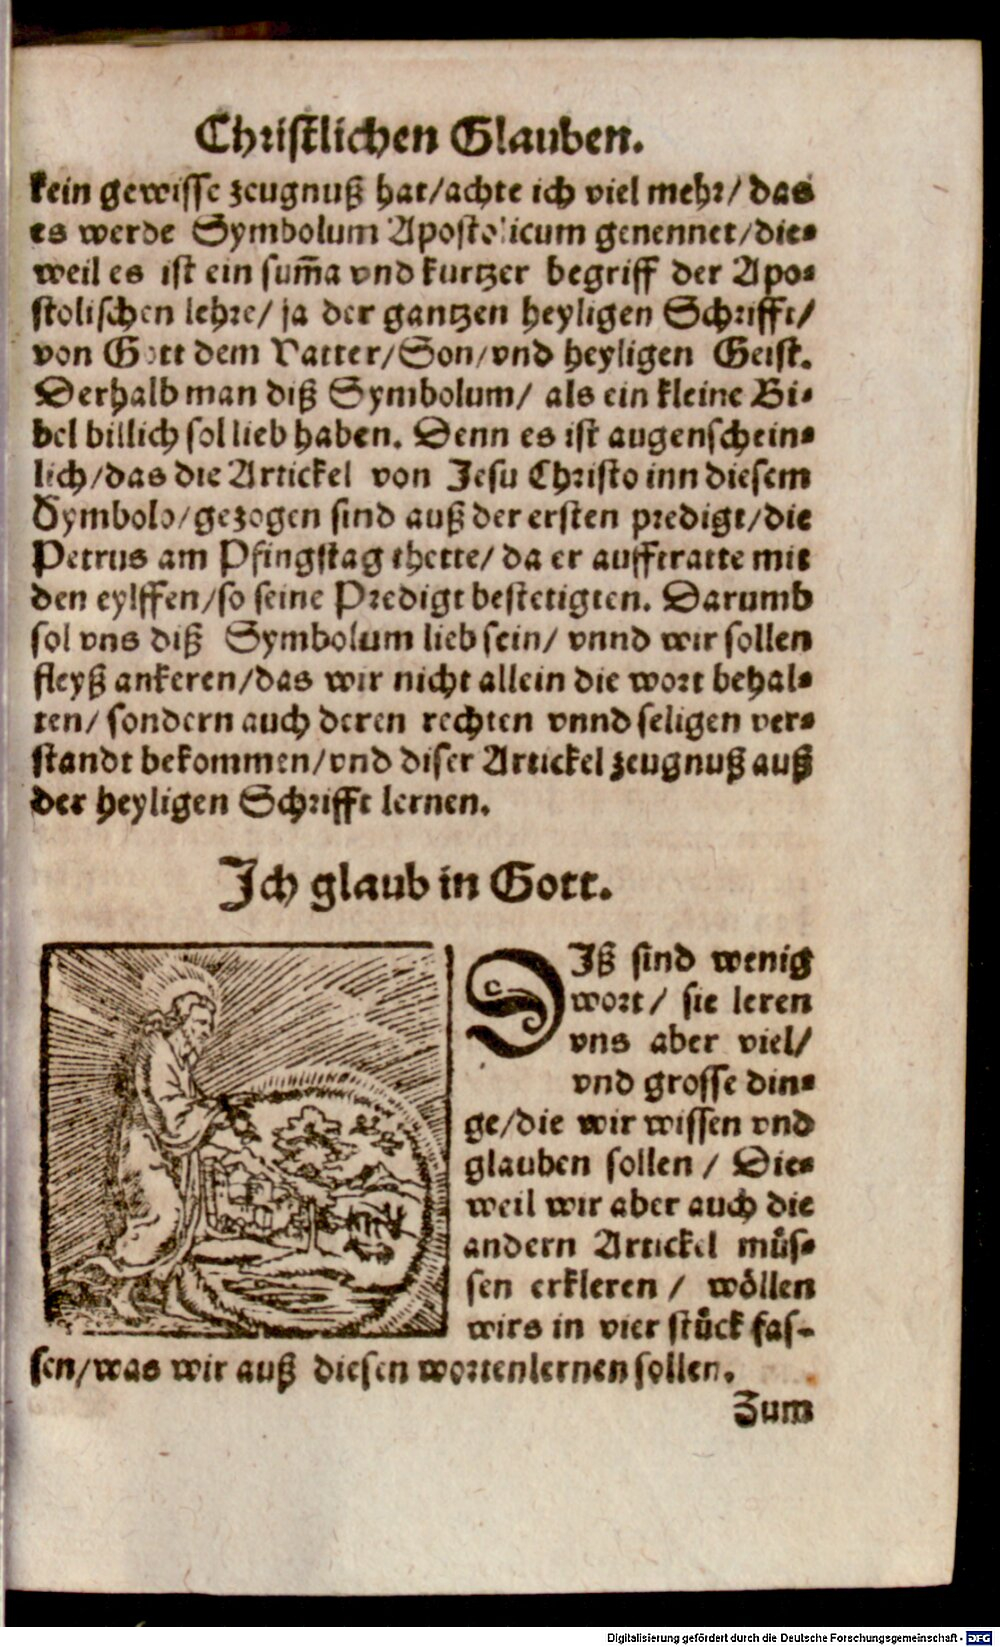 Christlichen Glauben.
kein gewisse zeugnuß hat/achte ich viel mehr/ das
es werde Symbolum Apostolicum genennet/die-
weil es ist ein sum̃a vnd kurtzer begriff der Apo-
stolischen lehre/ ja der gantzen heyligen Schrifft/
von Gott dem Vatter/Son/vnd heyligen Geist.
Derhalb man diß Symbolum/ als ein kleine Bi-
bel billich sol lieb haben. Denn es ist augenschein-
lich/das die Artickel von Jesu Christo inn diesem
Symbolo/gezogen sind auß der ersten predigt/die
Petrus am Pfingstag thette/ da er aufftratte mit
den eylffen/so seine Predigt bestetigten. Darumb
sol vns diß Symbolum lieb sein/ vnnd wir sollen
fleyß ankeren/das wir nicht allein die wort behal-
ten/ sondern auch deren rechten vnnd seligen ver-
standt bekommen/vnd diser Artickel zeugnuß auß
der heyligen Schrifft lernen.
Ich glaub in Gott.
DIß sind wenig
wort/ sie leren
vns aber viel/
vnd grosse din-
ge/die wir wissen vnd
glauben sollen / Die-
weil wir aber auch die
andern Artickel müs-
sen erkleren / wöllen
wirs in vier stück fas-
sen/was wir auß diesen worten lernen sollen.
Zum
Digitalisierung gefördert durch die Deutsche Forschungsgemeinschaft - DFG